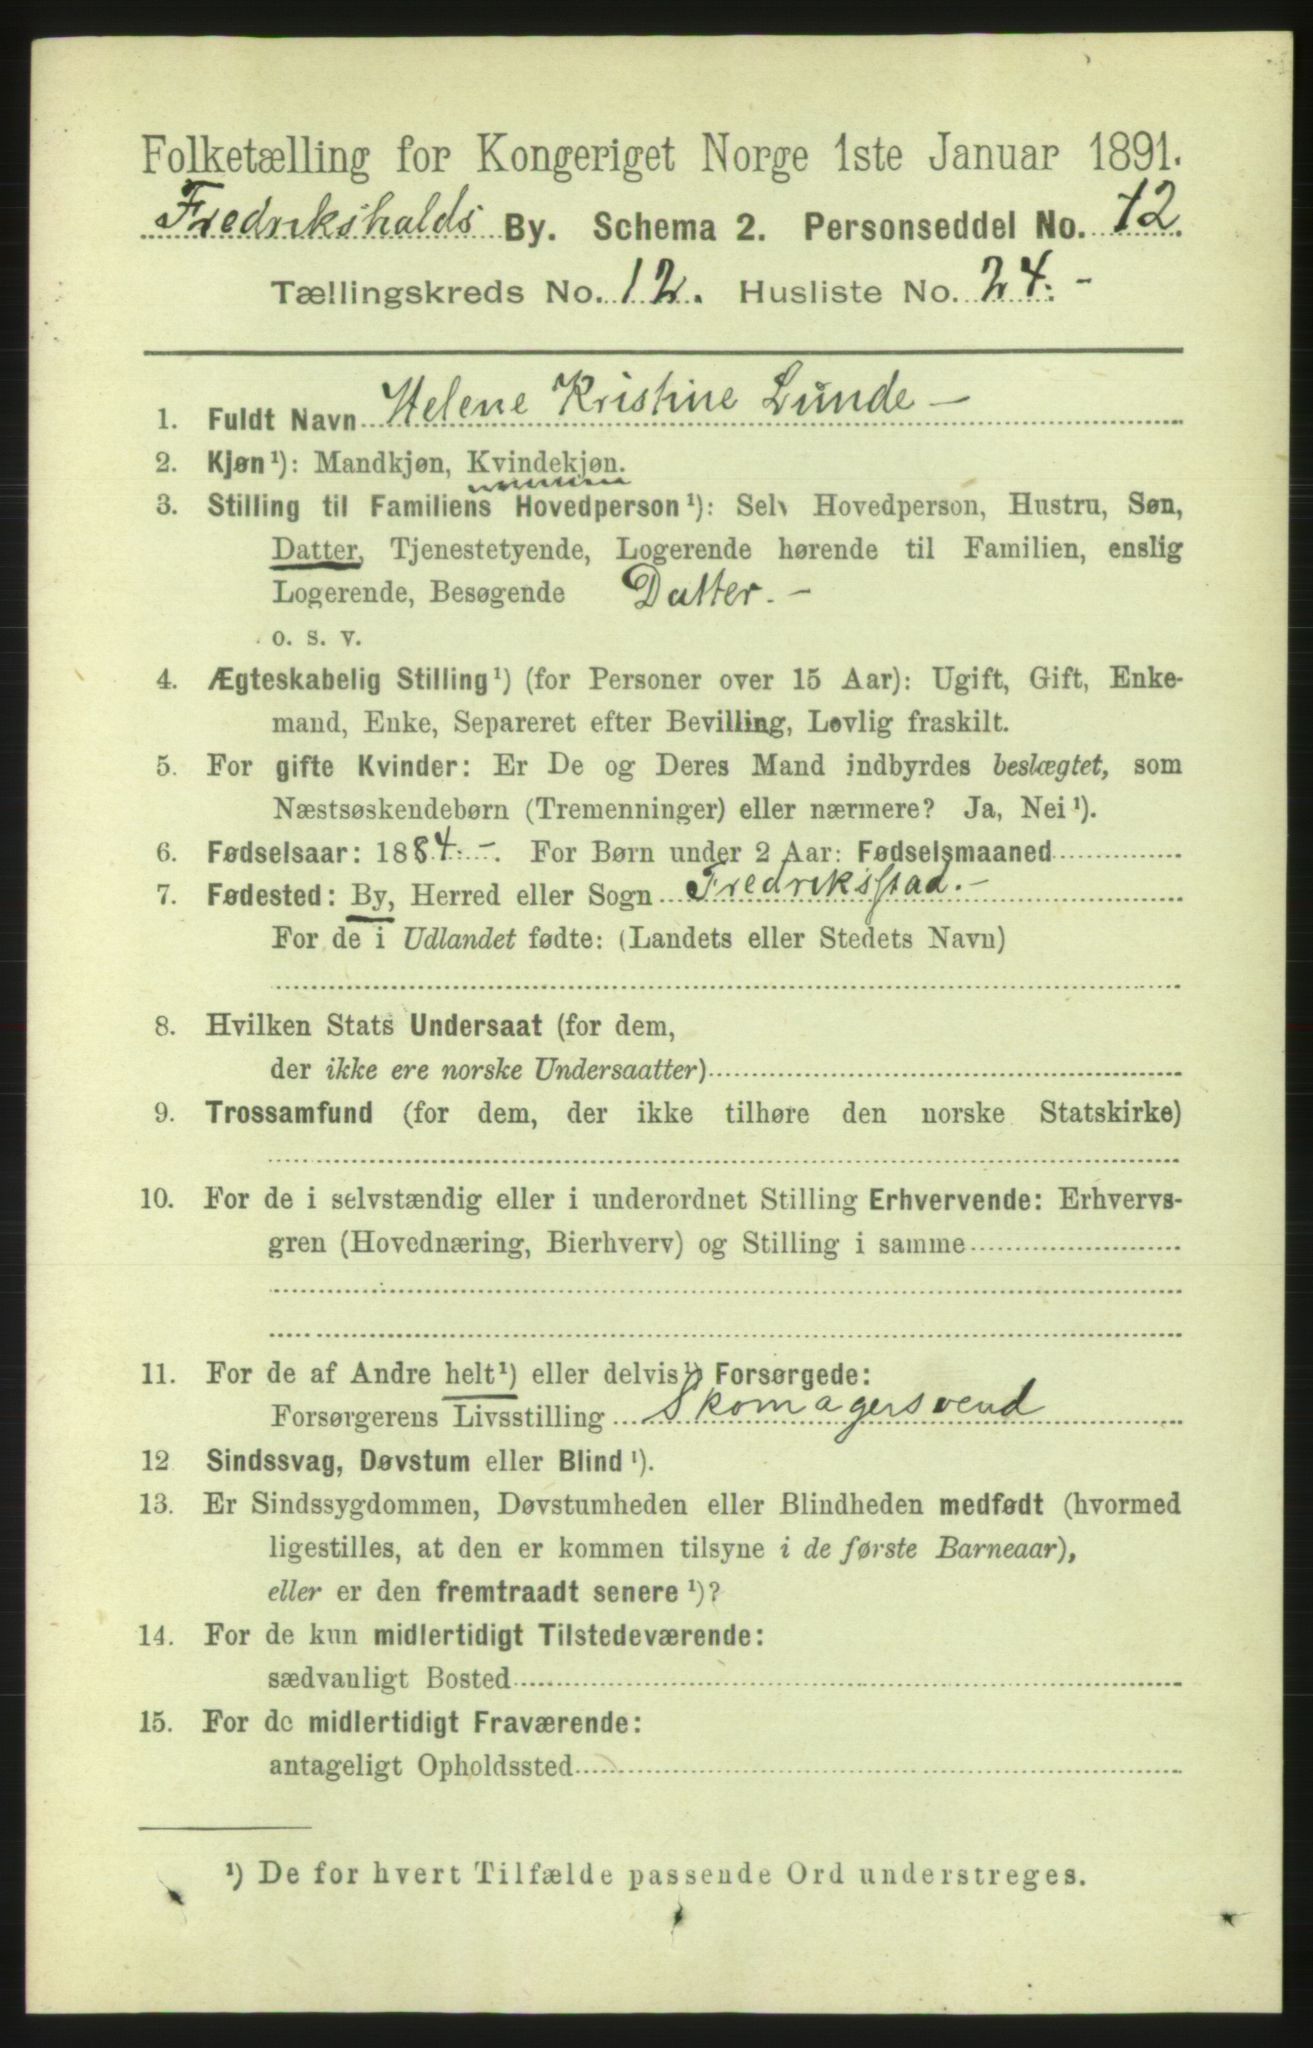 Folketælling for Kongeriget Norge 1ste Januar 1891.
Fredrikshalds By. Schema 2. Personseddel No. 12.
Tællingskreds No. 12. Husliste No. 24. -
1. Fuldt Navn Helene Kristine Lunde -
2. Kjøn¹): Mandkjøn, Kvindekjøn.
3. Stilling til Familiens Hovedperson¹): Selv Hovedperson, Hustru, Søn,
Datter, Tjenestetyende, Logerende hørende til Familien, enslig
Logerende, Besøgende Datter. -
o. s. v.
4. Ægteskabelig Stilling¹) (for Personer over 15 Aar): Ugift, Gift, Enke-
mand, Enke, Separeret efter Bevilling, Lovlig fraskilt.
5. For gifte Kvinder: Er De og Deres Mand indbyrdes beslægtet, som
Næstsøskendebørn (Tremenninger) eller nærmere? Ja, Nei¹).
6. Fødselsaar: 1884. -. For Børn under 2 Aar: Fødselsmaaned
7. Fødested: By, Herred eller Sogn Fredriksstad. -
For de i Udlandet fødte: (Landets eller Stedets Navn)
8. Hvilken Stats Undersaat (for dem,
der ikke ere norske Undersaatter)
9. Trossamfund (for dem, der ikke tilhøre den norske Statskirke)
10. For de i selvstændig eller i underordnet Stilling Erhvervende: Erhvervs-
gren (Hovednæring, Bierhverv) og Stilling i samme
11. For de af Andre helt¹) eller delvis¹) Forsørgede:
Forsørgerens Livsstilling Skomagersvend
12 Sindssvag, Døvstum eller Blind¹).
13. Er Sindssygdommen, Døvstumheden eller Blindheden medfødt (hvormed
ligestilles, at den er kommen tilsyne i de første Barneaar),
eller er den fremtraadt senere¹)?
14. For de kun midlertidigt Tilstedeværende:
sædvanligt Bosted
15. For de midlertidigt Fraværende:
antageligt Opholdssted
¹) De for hvert Tilfælde passende Ord understreges.